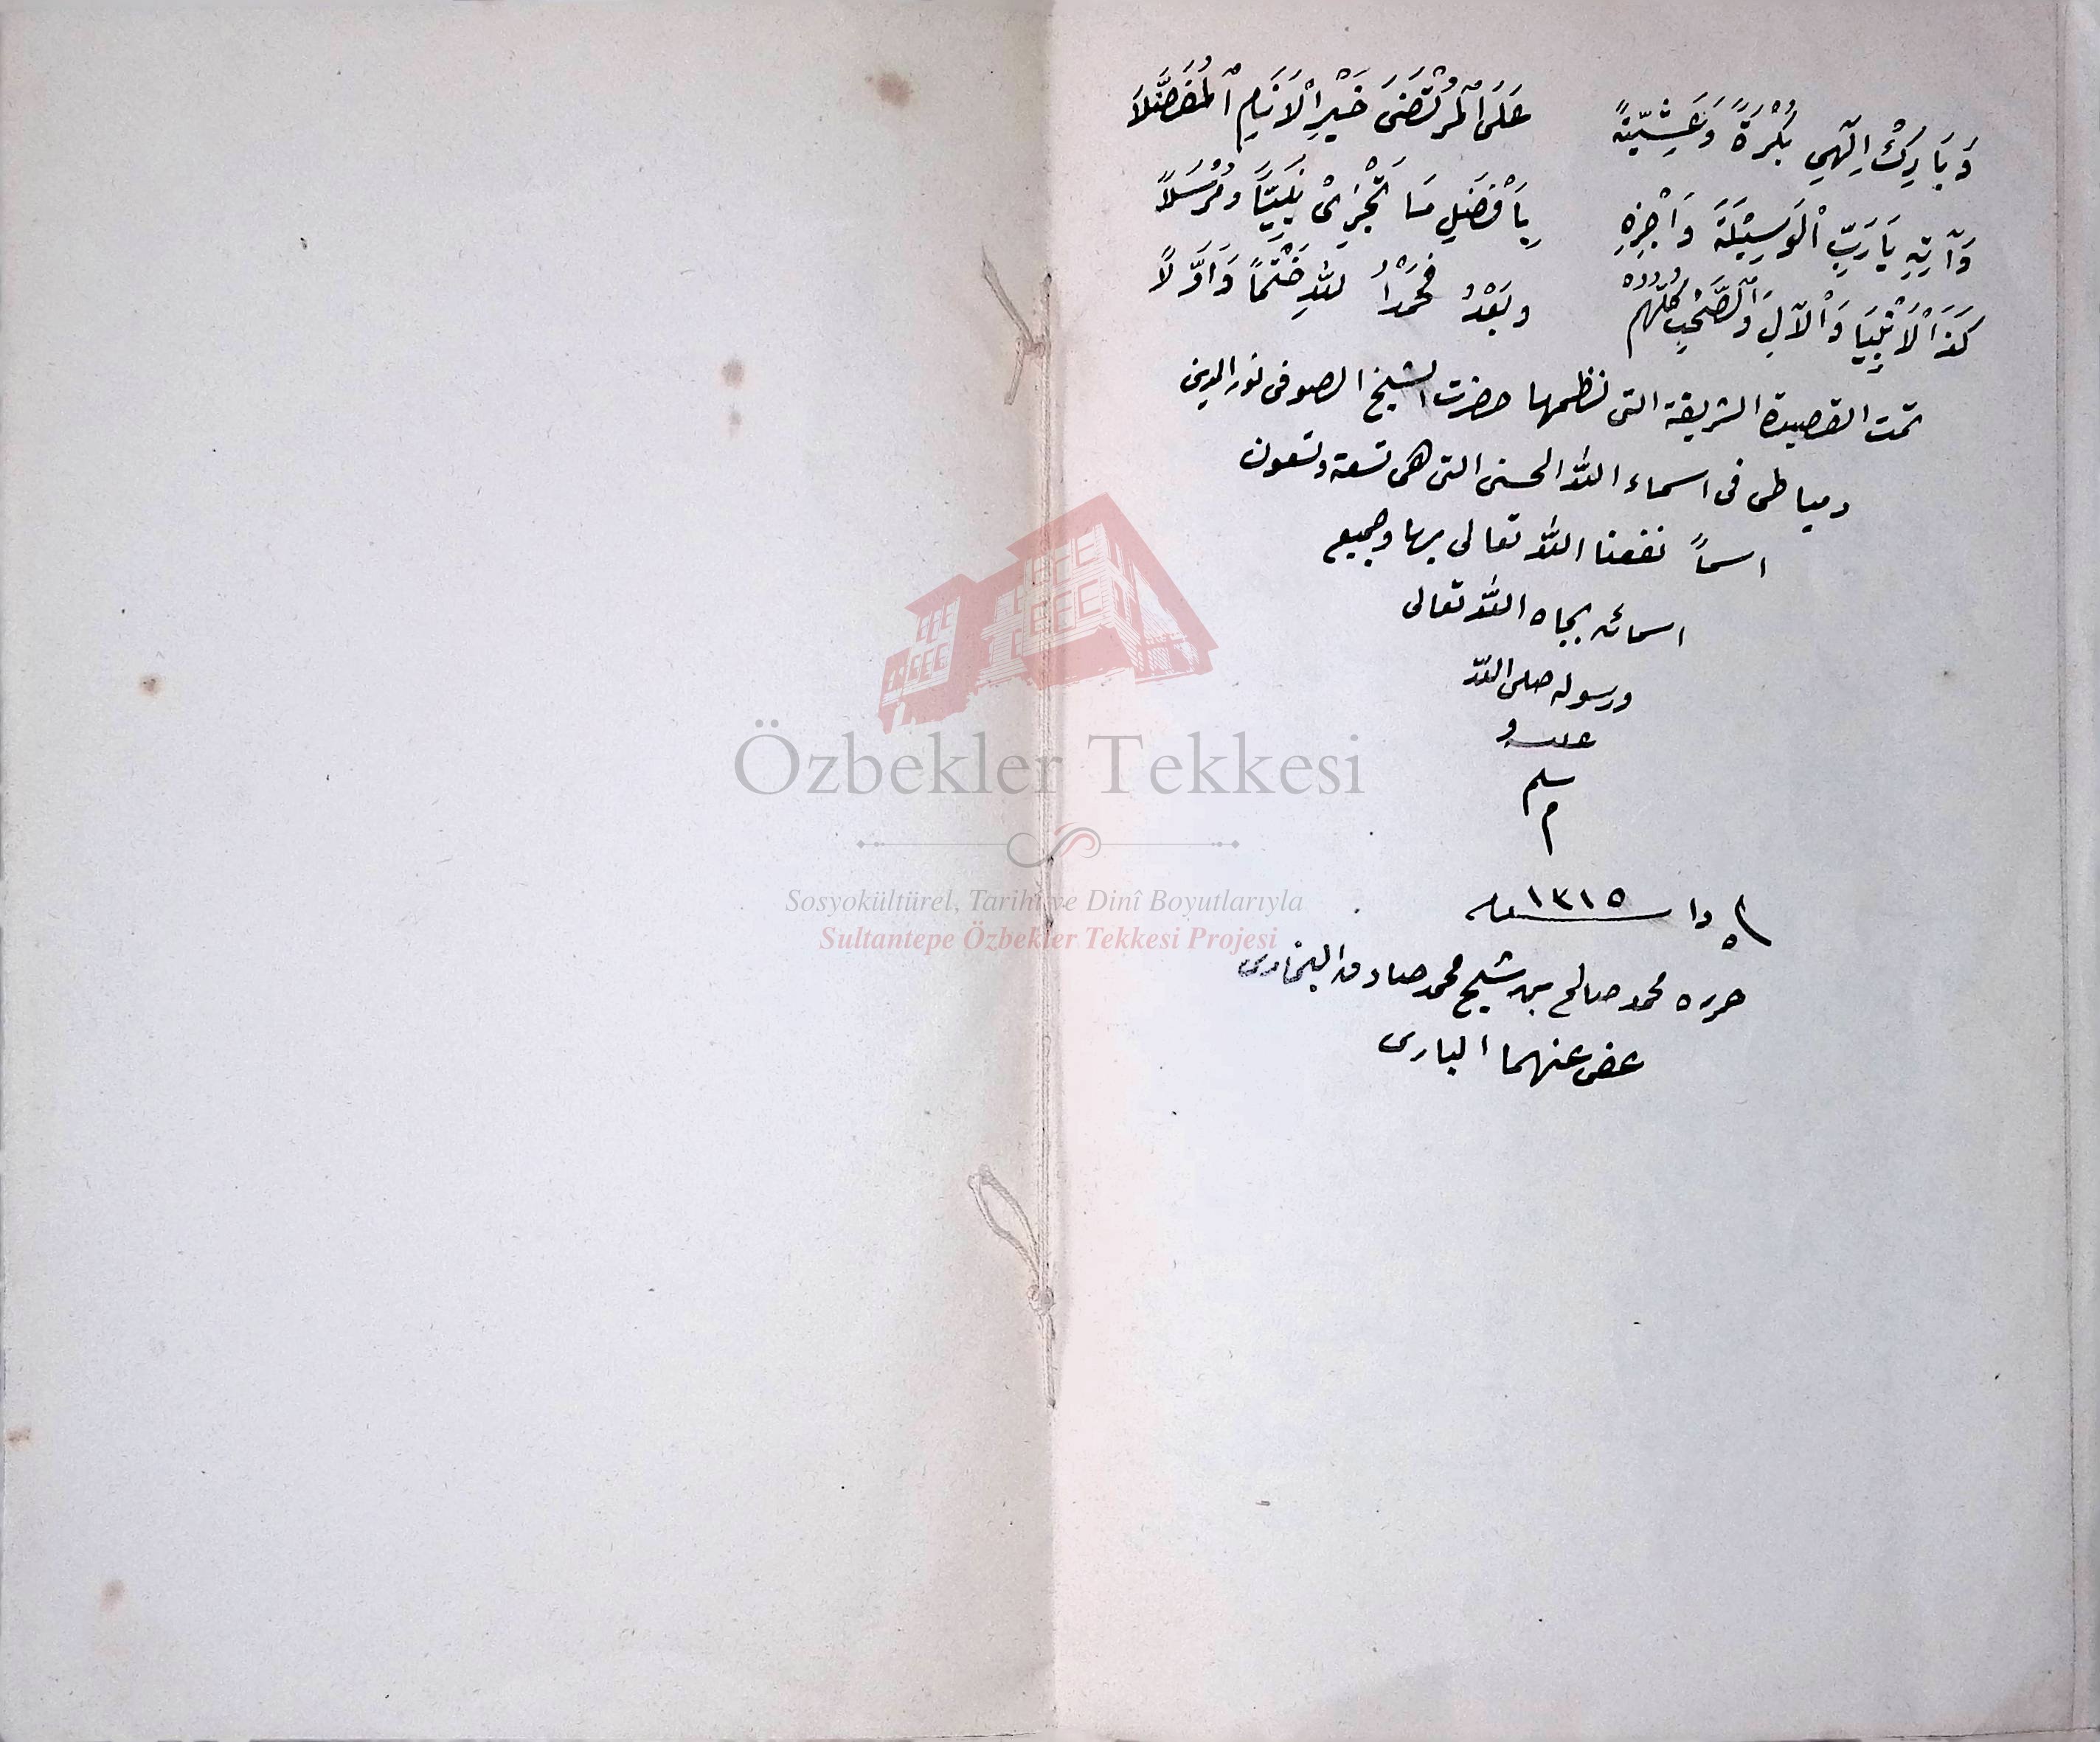 وَبَارِكْ اِلٰهِي بُكْرَةً وَعَشِيَّةً عَلَى الْمُرْتَضَى خَيْرِ الْاَنَامِ الْمُفَضَّلَا
وَآتِهِ يَارَبِّ الْوَسِيْلَةَ وَاَجْزِهِ بِاَفْضَلِ مَا تَجْزِىْ نَبِيًّا وَمُرْسَلًا
كَذَا الْاَنْبِيَا وَالْآلِ وَالصَّحْبِ كُلِّهُمْ وَبَعْدُ فَحَمْدًا لله خَتْمًا وَاَوَّلًا
تمت القصيدة الشريفة التى نظمها حضرت الشيخ الصوفى نور الدين
دمياطى فى اسماء الله الحسنى التى هى تسعة وتسعون
اسماً نفعنا الله تعالى بها وبجميع
اسمائه بجاه الله تعالى
ورسوله صلى الله
عليه و
سلم
م
١٣١٥
حرره محمد صالح بن شيخ محمد صادق البخارى
عفى عنهما البارى
Özbekler Tekkesi
Sosyokültürel, Tarihî ve Dinî Boyutlarıyla
Sultantepe Özbekler Tekkesi Projesi